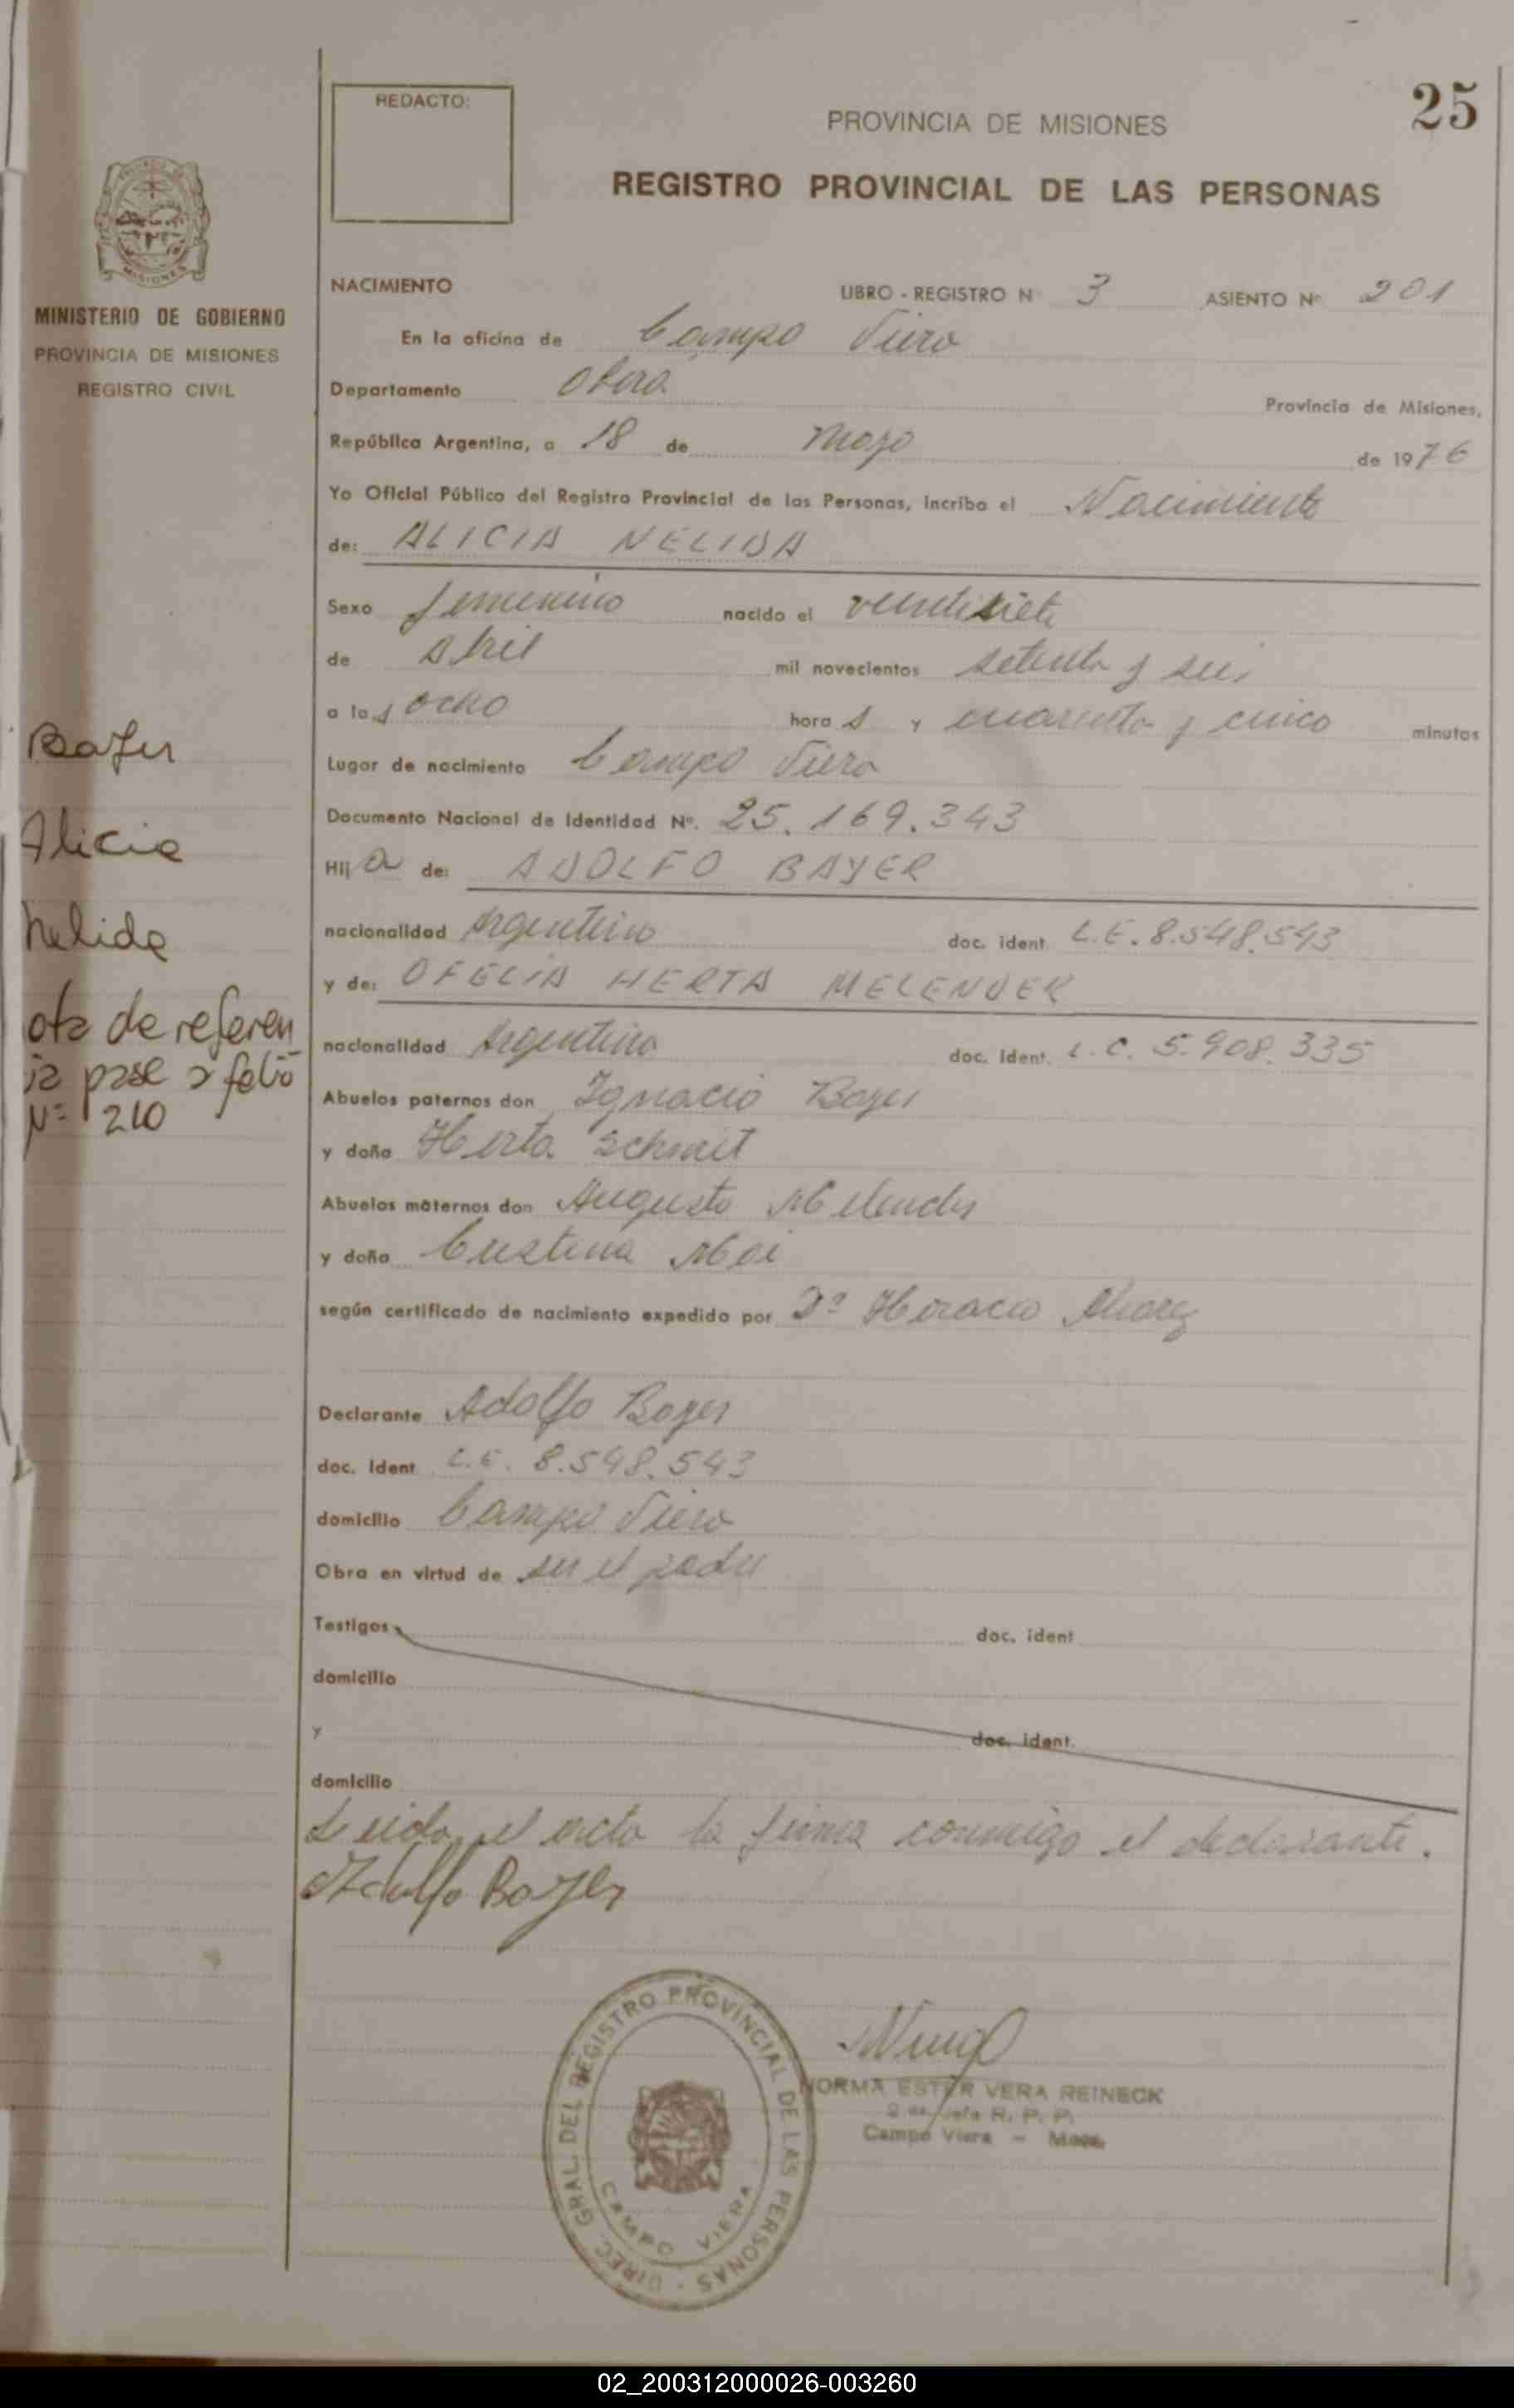 25
REDACTO:
PROVINCIA DE MISIONES
REGISTRO PROVINCIAL DE LAS PERSONAS
MISIONES
MINISTERIO DE GOBIERNO
PROVINCIA DE MISIONES
REGISTRO CIVIL
NACIMIENTO LIBRO - REGISTRO Nº 3 ASIENTO Nº 201
En la oficina de Campo Viera
Departamento Oberá Provincia de Misiones,
República Argentina, a 18 de Mayo de 1976
Yo Oficial Público del Registro Provincial de las Personas, incribo el Nacimiento
de: ALICIA NELIDA
Sexo femenino nacido el ventisiete
de Abril mil novecientos setenta y seis
a las ocho horas y cuarenta y cinco minutos
Lugar de nacimiento Campo Viera
Documento Nacional de Identidad Nº. 25.169.343
Hija de: ADOLFO BAYER
nacionalidad Argentino doc. ident. L.E. 8.548.543
y de: OFELIA HERTA MELENDER
nacionalidad Argentina doc. ident. L.C. 5.908.335
Abuelos paternos don Ignacio Bayer
y doña Herta Schmit
Abuelos maternos don Augusto Melender
y doña Cristina
según certificado de nacimiento expedido por Dº Horacio
Declarante Adolfo Bayer
doc. ident L.E. 8.548.543
domicilio Campo Viera
Obra en virtud de ser el padre
Testigos doc. ident
domicilio
y doc. ident.
domicilio
Leida el acta la firma conmigo el declarante.
Adolfo Bayer
Bayer
Alicia
Nelida
ota de referen
ia pase a folio
Nº 210
DIREC. GRAL. DEL REGISTRO PROVINCIAL DE LAS PERSONAS
CAMPO VIERA
NORMA ESTER VERA REINECK
Jefa R. P. P.
Campo Viera - Mnes.
02_200312000026-003260